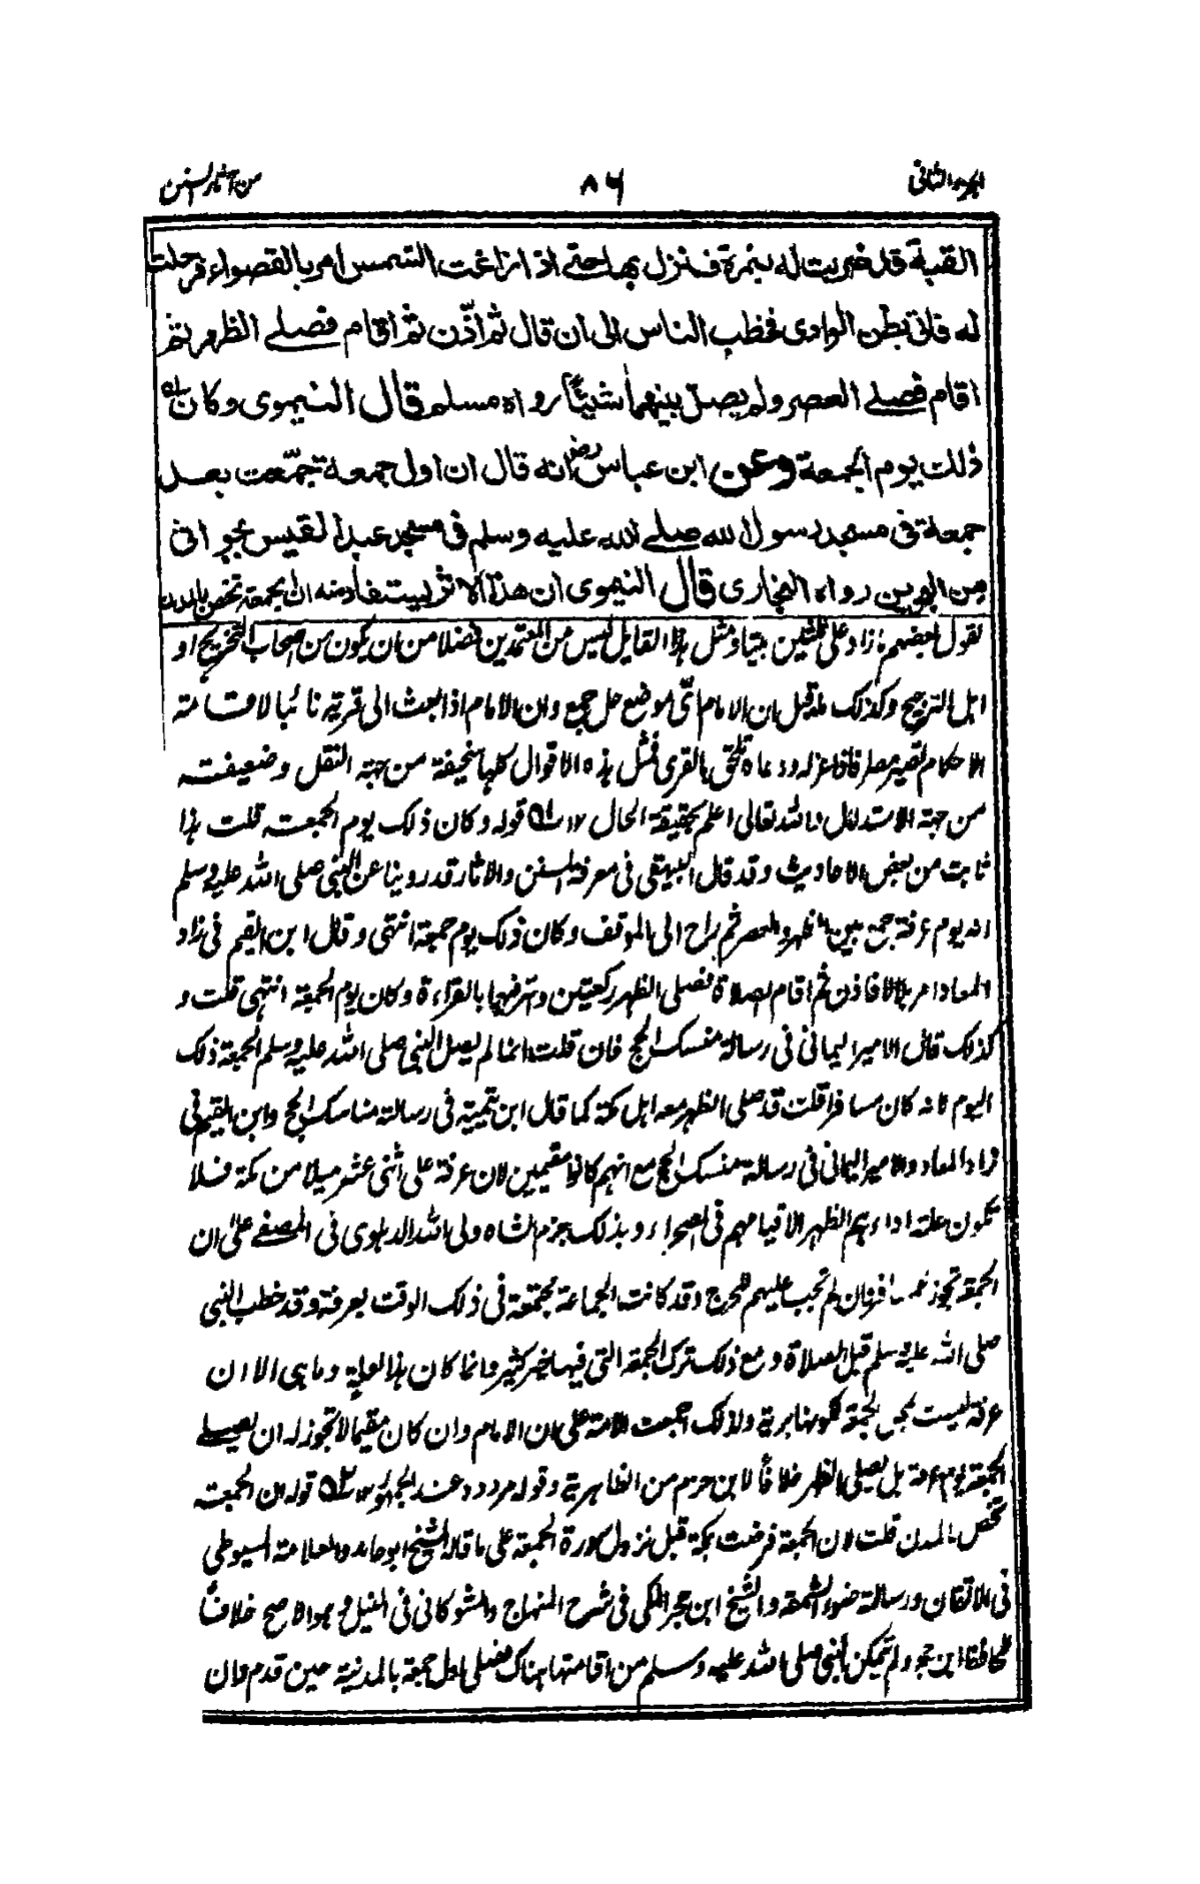 الجزء الثاني ٨٦ من آثار السنن
القبة قد ضربت له بنمرة فنزل بها حتى اذا زاغت الشمس امر بالقصواء فرحلت
له فاتى بطن الوادى فخطب الناس الى ان قال ثم اذّن ثم اقام فصلے الظهر ثم
اقام فصلے العصر ولم يصلّ بينهما شيئًا رواه مسلم قال النيموى وكان
ذلك يوم الجمعة وعن ابن عباس رض انه قال ان اول جمعة جمّعت بعد
جمعة فى مسجد رسول الله صلے الله عليه وسلم فى مسجد عبد القيس بجواثى
من البحرين رواه البخارى قال النيموى ان هذا الاثر يستفاد منه ان الجمعة تختص بالمدن
لقول بعضهم ما زاد على ثلثين بيتا ومثل هذا القايل ليس من المعتمدين فضلا من ان يكون من اصحاب التخريج او
اهل الترجيح وكذلك ما قيل ان الامام اىّ موضع حل جمع وان الامام اذا بعث الى قرية نائبا لاقامة
الاحكام تصير مصرا فاذا عزله ودعاه تلحق بالقرى فمثل هذه الاقوال كلها سخيفة من جهة النقل وضعيفة
من جهة الاستدلال والله تعالى اعلم بحقيقة الحال ١٢ قوله وكان ذلك يوم الجمعة قلت هذا
ثابت من بعض الاحاديث وقد قال البيهقى فى معرفة السنن والاثار قد روينا عن النبى صلى الله عليه وسلم
انه يوم عرفة جمع بين الظهر والعصر ثم راح الى الموقف وكان ذلك يوم جمعة انتهى وقال ابن القيم فى زاد
المعاد امر بلالا فاذن ثم اقام الصلاة فصلى الظهر ركعتين واسر فيهما بالقراءة وكان يوم الجمعة انتهى قلت و
كذلك قال الامير اليمانى فى رسالة منسك الحج فان قلت انما لم يصل النبى صلى الله عليه وسلم الجمعة ذلك
اليوم لانه كان مسافرا قلت قد صلى الظهر معه اهل مكة كما قال ابن تيمية فى رسالة مناسك الحج وابن القيم فى
زاد المعاد والامير اليمانى فى رسالة منسك الحج مع انهم كانوا مقيمين لان عرفة على اثنى عشر ميلا من مكة فلا
تكون علة اداءهم الظهر الا قيامهم فى الصحراء وبذلك جزم الشاه ولى الله الدهلوى فى المصفے على ان
الجمعة تجوز للمسافر وان لم تجب عليهم للحرج وقد كانت الجماعة مجتمعة فى ذلك الوقت بعرفة وقد خطب النبى
صلى الله عليه وسلم قبل الصلاة ومع ذلك ترك الجمعة التى فيها خير كثير وانما كان هذا لعلة وما هى الا ان
عرفة ليست بمحل الجمعة لكونها برية ولذلك اجمعت الامة على ان الامام وان كان مقيما لا تجوز له ان يصلے
الجمعة يوم عرفة بل يصلى الظهر خلافًا لابن حزم من الظاهرية وقوله مردود عند الجمهور ١٢ قوله ان الجمعة
تختص بالمدن قلت لان الجمعة فرضت بمكة قبل نزول سورة الجمعة على ما قاله الشيخ ابو حامد والعلامة السيوطى
فى الاتقان ورسالة ضوء الشمعة والشيخ ابن حجر المكى فى شرح المنهاج والشوكانى فى النيل وهو الاصح خلافًا
للحافظ ابن حجر ولم يتمكن النبى صلى الله عليه وسلم من اقامتها هناك فصلى اول جمعة بالمدينة حين قدم وان